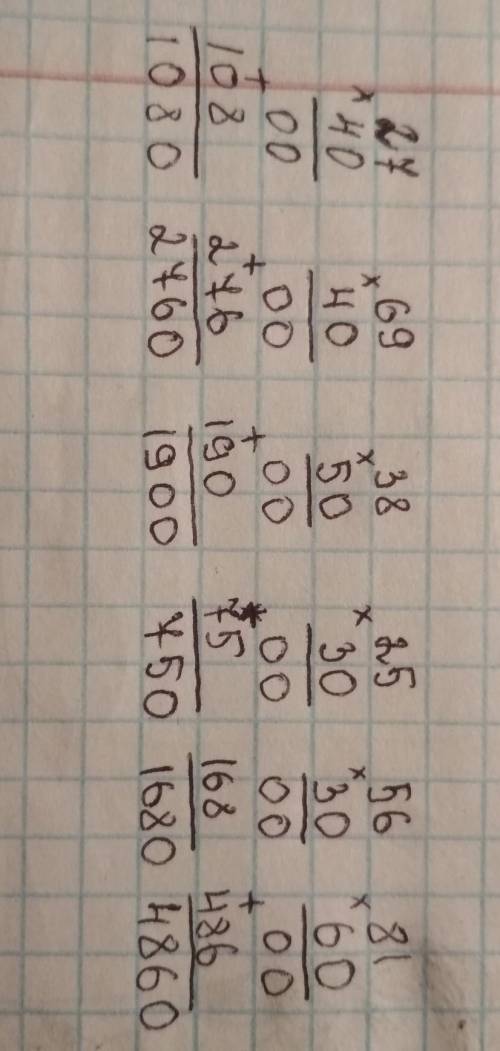 ×27 ×69 ×38 ×25 ×56 ×81
40 40 50 30 30 60
+00 +00 +00 00 00 +00
108 276 190 75 168 486
1080 2760 1900 750 1680 4860